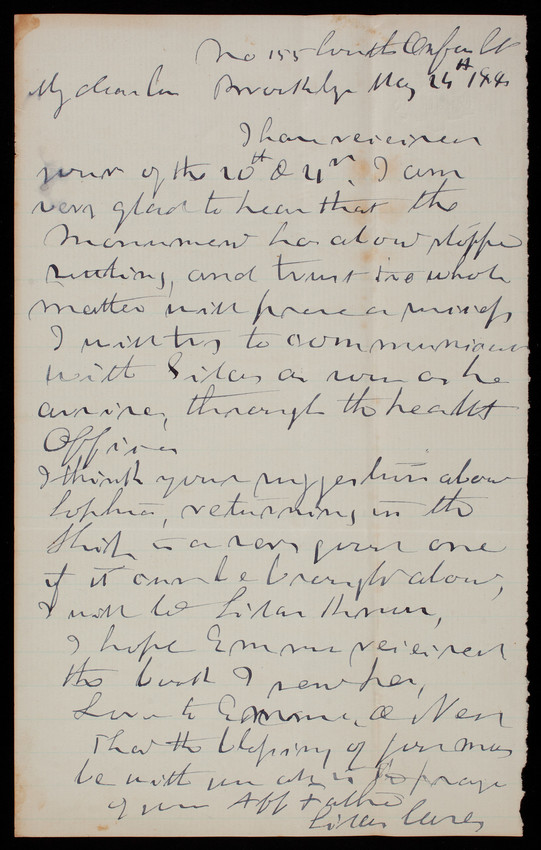 No 155 South Oxford St
My dear Son Brooklyn May 24th 188
I have received
yours of the 20th & 21st. I am
very glad to hear that the
Monument has about stopped
settling, and trust the whole
matter will prove a success
I will try to communicate
with Silas as soon as he
arrives, through the health
Officer
I think your suggestion about
Sophia, returning in the
Ship is a very good one
if it can be brought about,
I will let Silas know,
I hope Emma received
the book I sent her,
Love to Emma, & Nell
That the blessing of God may
be with you all is the prayer
of your Aff Father
Silas Casey